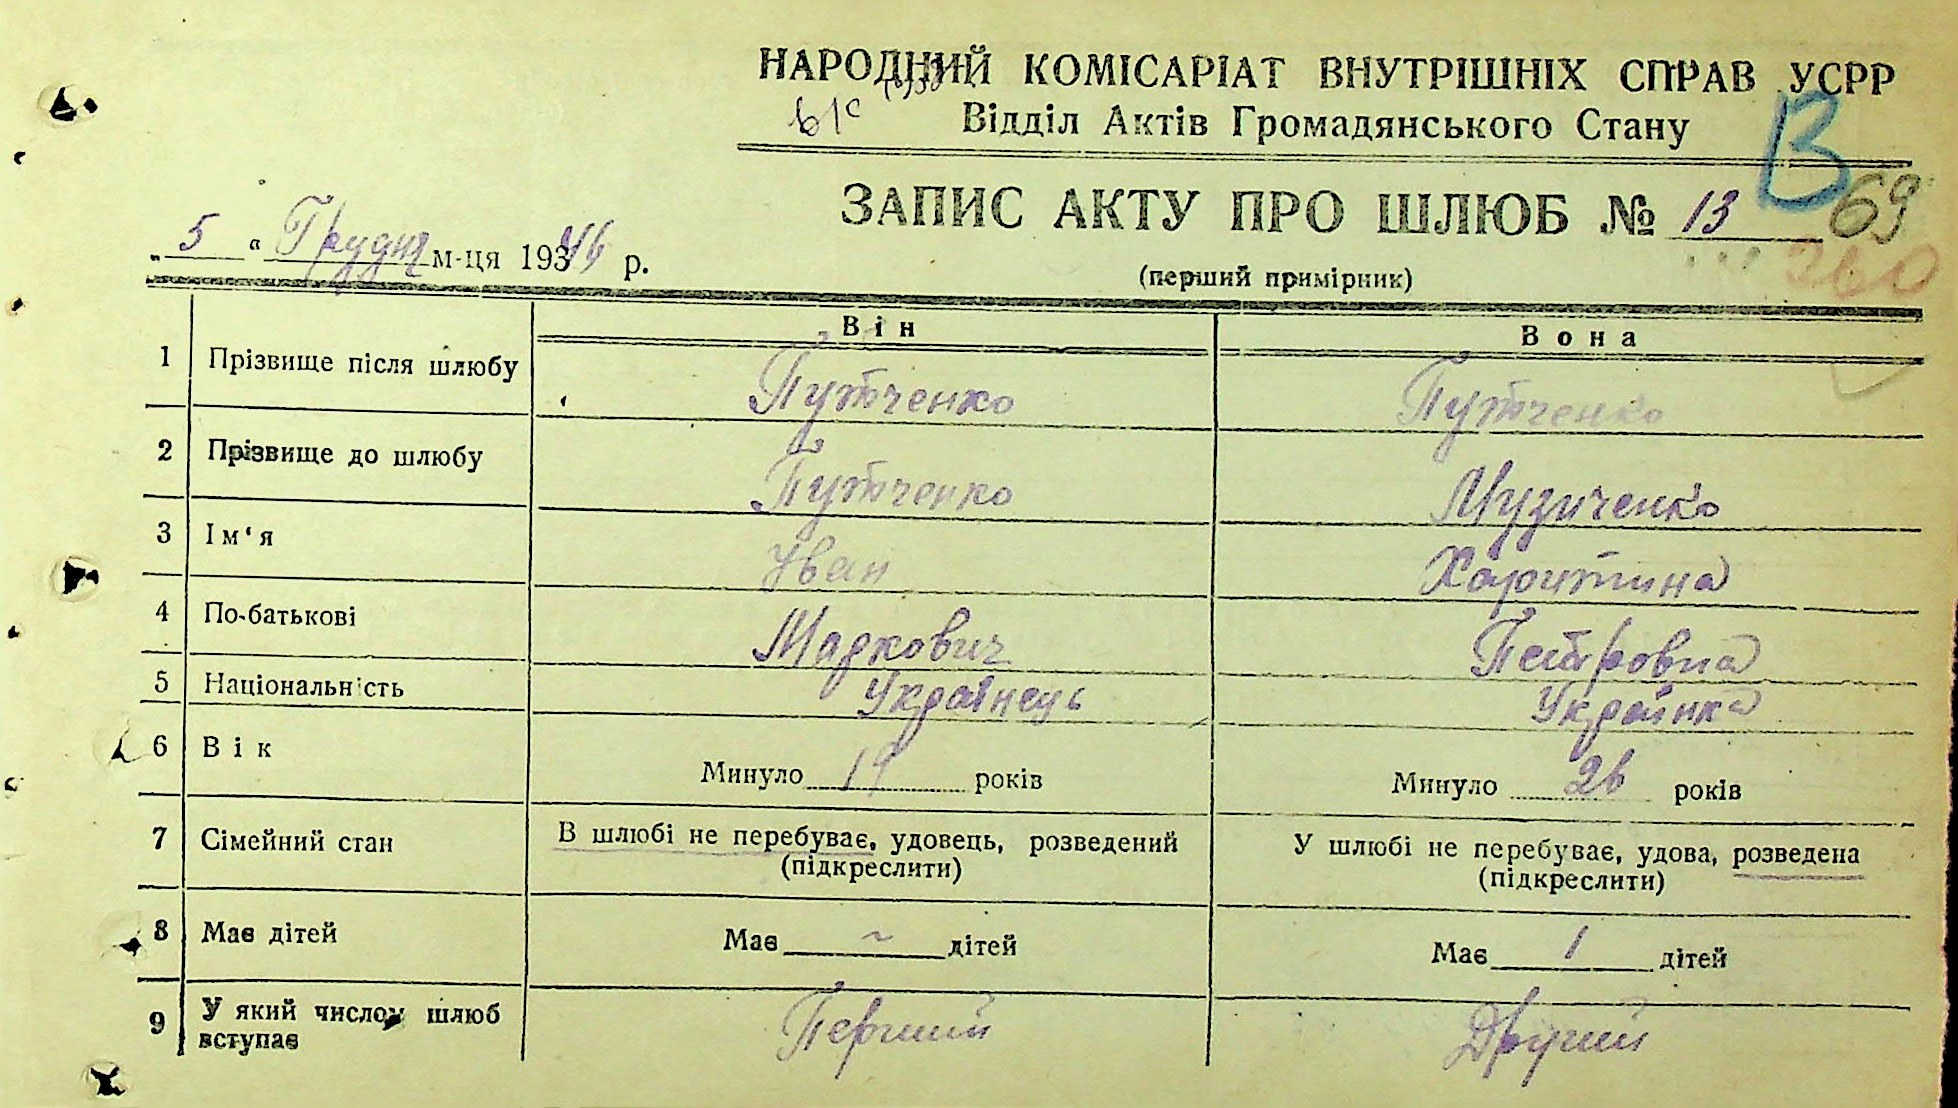 НАРОДНИЙ КОМІСАРІАТ ВНУТРІШНІХ СПРАВ УСРР
в/с Відділ Актів Громадянського Стану
В
ЗАПИС АКТУ ПРО ШЛЮБ № 13
69
360
„ 5 “ Грудня м-ця 1946 р.
(перший примірник)
Він Вона
1 Прізвище після шлюбу Путченко Путченко
2 Прізвище до шлюбу Путченко Музиченко
3 Ім‘я Іван Харитина
4 По-батькові Маркович Петровна
5 Національність Українець Українка
6 Вік Минуло 19 років Минуло 26 років
7 Сімейний стан В шлюбі не перебуває, удовець, розведений У шлюбі не перебуває, удова, розведена
(підкреслити) (підкреслити)
8 Має дітей Має ~ дітей Має 1 дітей
9 У який числом шлюб вступає Перший Другий